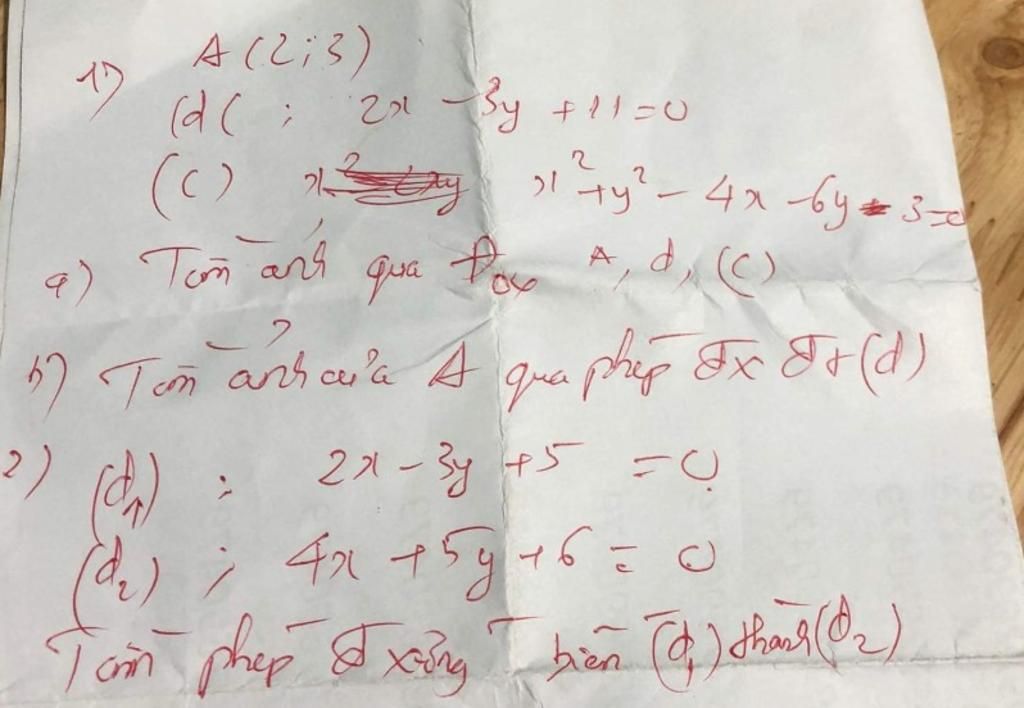 1) A(2;3)
(d( ; 2x - 3y + 11 = 0
(C) x² + y² - 4x - 6y - 3 = 0
a) Tìm ảnh qua Đox A, d, (C)
b) Tìm ảnh của A qua phép Đx Đt (d)
2) (d1) ; 2x - 3y + 5 = 0
(d2) ; 4x + 5y + 6 = 0
Tìm phép Đ xứng biến (d1) thành (d2)